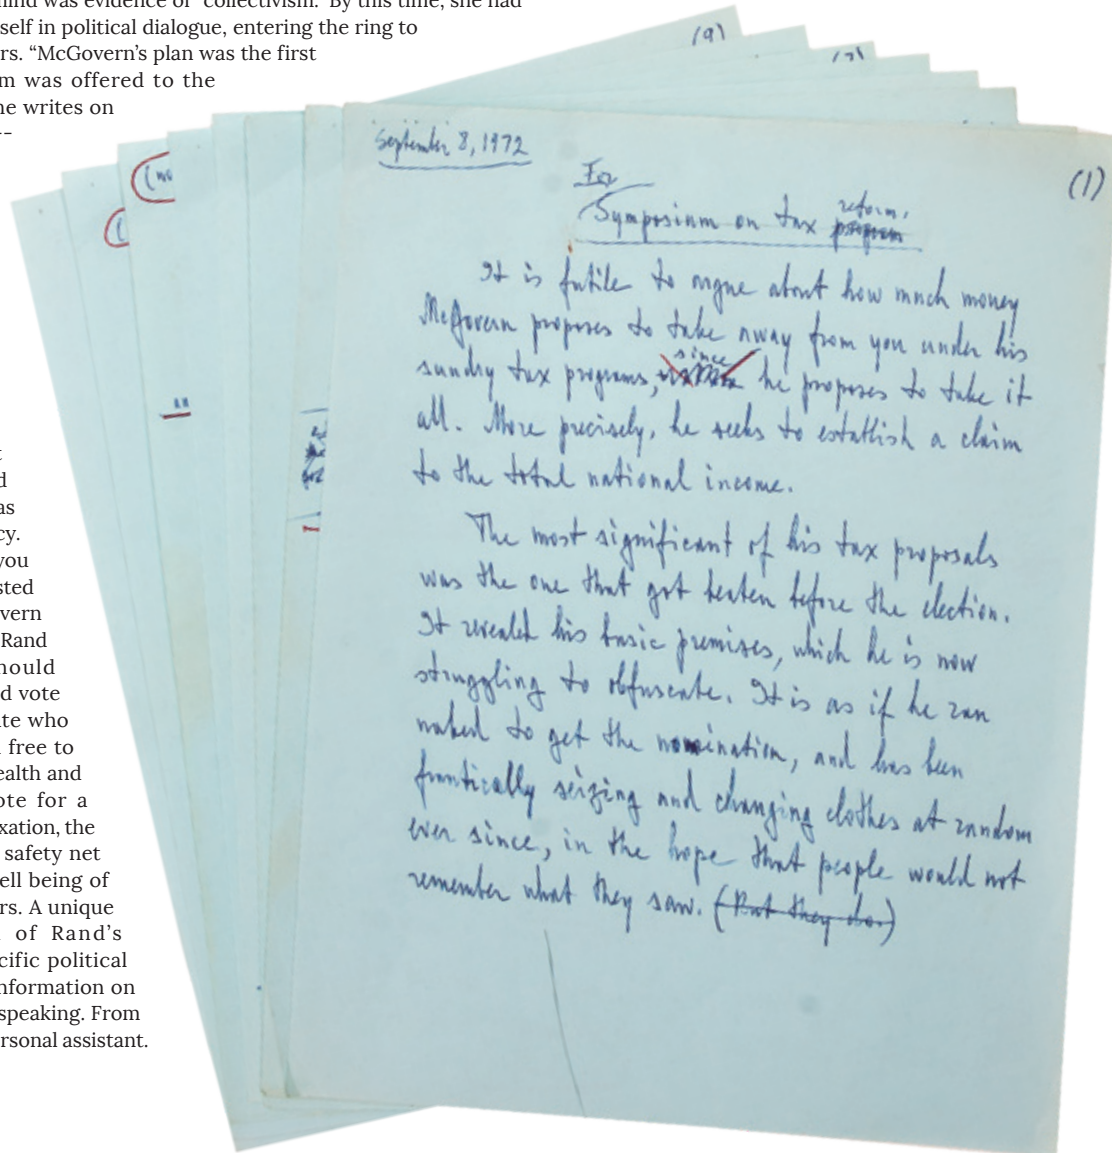 mind was evidence of "collectivism." By this time, she had
self in political dialogue, entering the ring to
rs. “McGovern’s plan was the first
m was offered to the
he writes on
--
t
d
as
cy.
you
sted
vern
Rand
hould
d vote
ate who
free to
ealth and
ote for a
xation, the
safety net
ell being of
rs. A unique
of Rand’s
cific political
nformation on
speaking. From
rsonal assistant.
(9)
(7)
(no
(
September 8, 1972
(1)
For
Symposium on tax reform. program
It is futile to argue about how much money
McGovern proposes to take away from you under his
sundry tax programs, since he proposes to take it
all. More precisely, he seeks to establish a claim
to the total national income.
The most significant of his tax proposals
was the one that got beaten before the election.
It revealed his basic premises, which he is now
struggling to obfuscate. It is as if he ran
naked to get the nomination, and has been
frantically seizing and changing clothes at random
ever since, in the hope that people would not
remember what they saw. (But they do.)